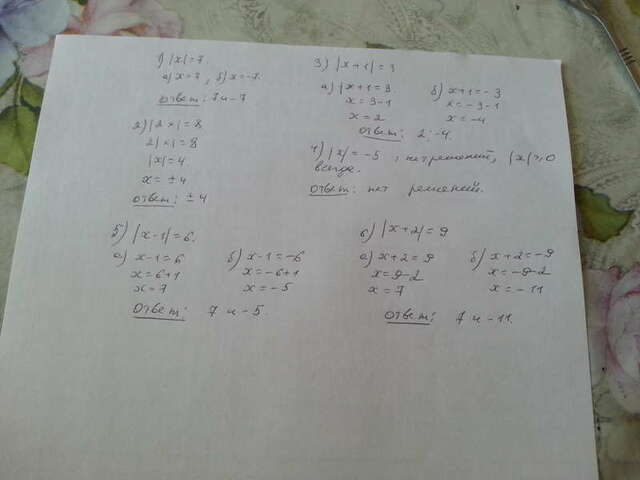 1) |x|=7.
а) x=7, б) x=-7.
ответ: 7 и -7
2) |2x|=8
2|x|=8
|x|=4
x=±4
ответ: ±4
3) |x+1|=3
а) x+1=3.
x=3-1
x=2
б) x+1=-3
x=-3-1
x=-4
ответ: 2; -4.
4) |x|=-5, нет решений, |x|≥0
всегда.
ответ: нет решений.
5) |x-1|=6.
а) x-1=6
x=6+1
x=7
б) x-1=-6
x=-6+1
x=-5
ответ: 7 и -5.
6) |x+2|=9
а) x+2=9
x=9-2
x=7
б) x+2=-9
x=-9-2
x=-11
ответ: 7 и -11.